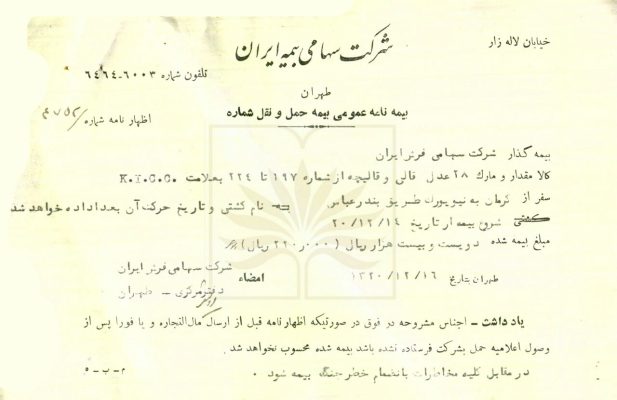 خیابان لاله زار
شرکت سهامی بیمه ایران
تلفون شماره ۶۰۰۳-۶۴۶۴
طهران
بیمه نامه عمومی بیمه حمل و نقل شماره
اظهار نامه شماره
بیمه گذار شرکت سهامی فرش ایران
کالا مقدار و مارك ۲۸ عدل قالی و قالیچه از شماره ۱۹۷ تا ۲۲۴ بعلامت K.I.C.C.
سفر از کرمان به نیویورک طریق بندرعباس نام کشتی و تاریخ حرکت آن بعداداده خواهد شد
شروع بیمه از تاریخ ۲۰/۱۲/۱۴
مبلغ بیمه شده دویست و بیست هزار ریال (۲۲۰٫۰۰۰ ریال)
طهران بتاریخ ۱۳۲۰/۱۲/۱۶ امضاء شرکت سهامی فرش ایران
دفتر مرکزی - طهران
یاد داشت - اجناس مشروحه در فوق در صورتیکه اظهار نامه قبل از ارسال مال‌التجاره و یا فورا پس از
وصول اعلامیه حمل بشرکت فرستاده نشده باشد بیمه شده محسوب نخواهد شد.
در مقابل کلیه مخاطرات بانضمام خطر جنگ بیمه شود.
م-ب-۵